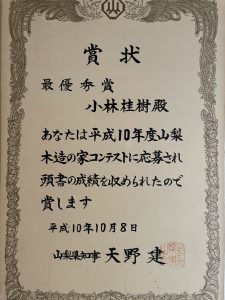 賞状
最優秀賞
小林桂樹殿
あなたは平成10年度山梨
木造の家コンテストに応募され
頭書の成績を収められたので
賞します
平成10年10月8日
山梨県知事 天野 建